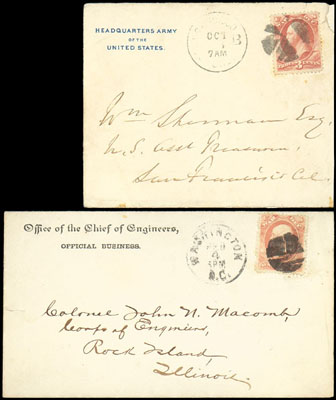 HEADQUARTERS ARMY
OF THE
UNITED STATES.
OCT
1
7AM
Wm Sherman Esq.
U.S. Asst Treasurer,
San Francisco Cal
Office of the Chief of Engineers,
OFFICIAL BUSINESS.
WASHINGTON
4
D.C.
Colonel John N. Macomb,
Corps of Engineers,
Rock Island,
Illinois.